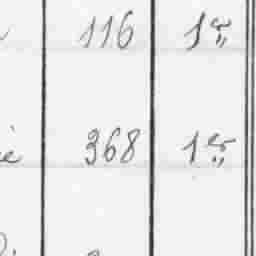 116 1er
368 1er